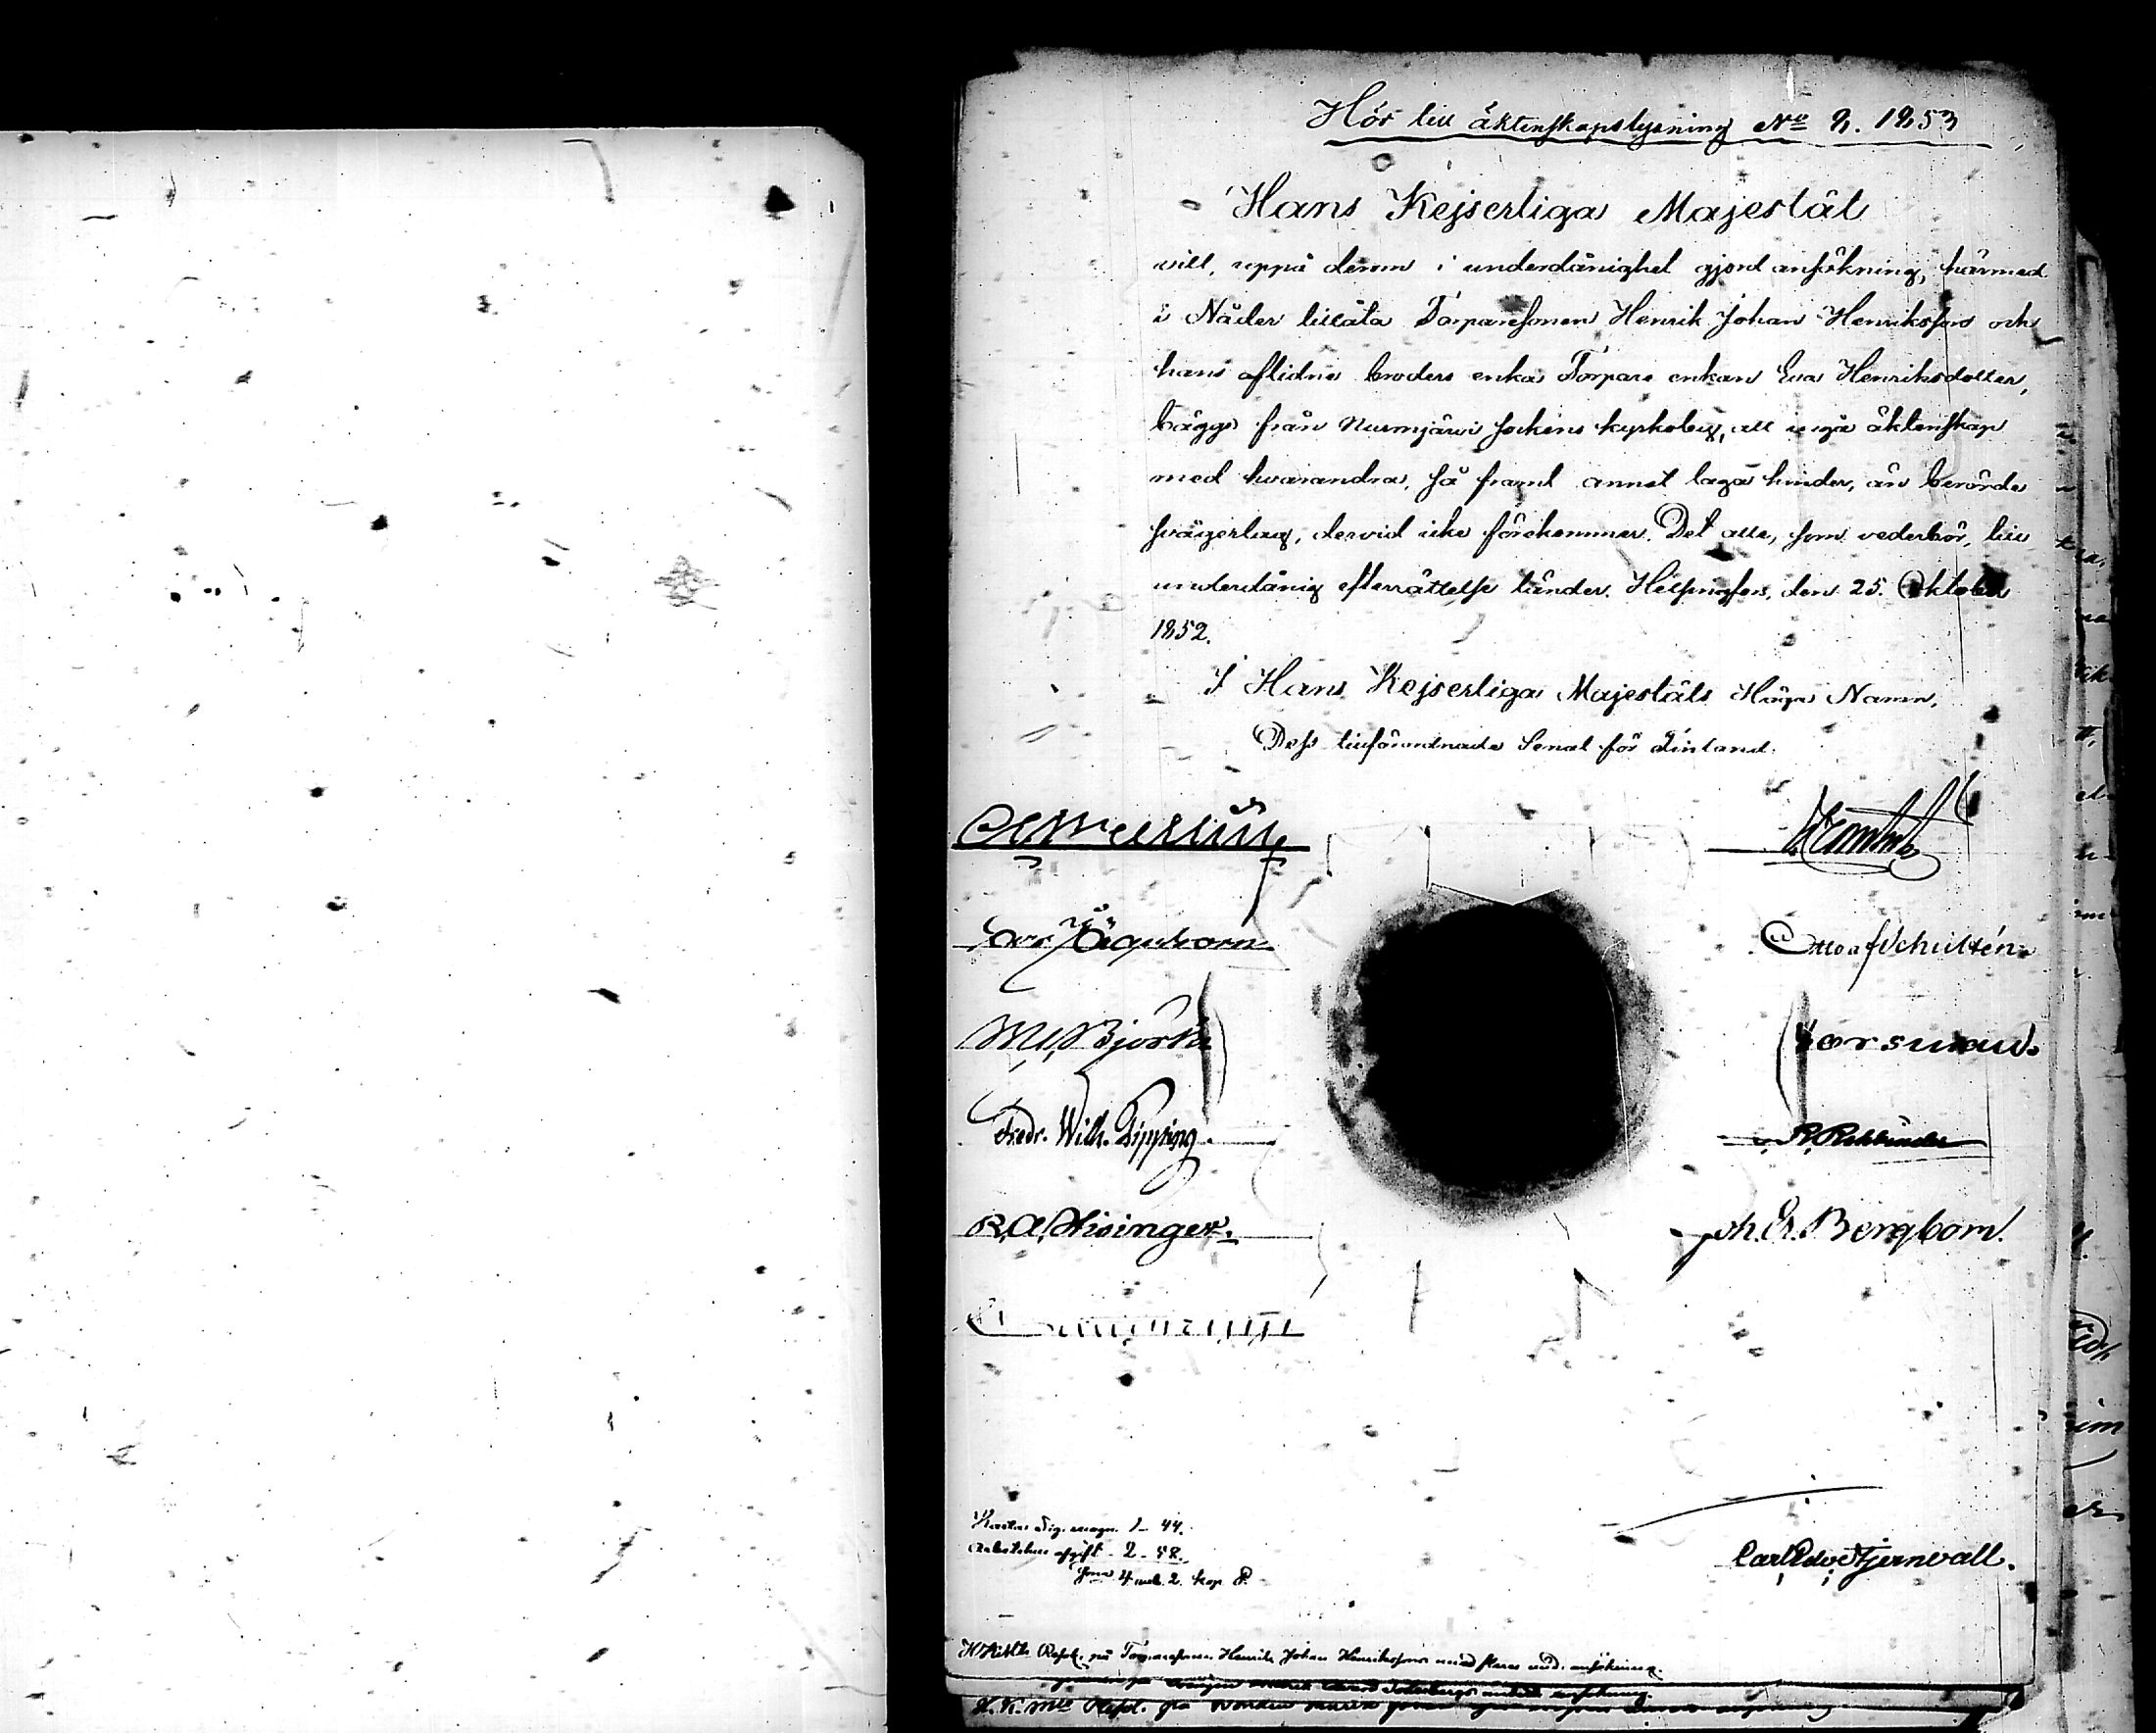 Hör till äktenskapslysning No 8. 1853
Hans Kejserliga Majestät
vill, uppå derom i underdånighet gjord ansökning, härmed
i Nåder tillåta Torparesonen Henrik Johan Henriksson och
hans aflidne broders enka Torpare enkan Eva Henriksdotter,
bägge från Nurmjärvi sockens kyrkoby, att ingå äktenskap
med hvarandra, så framt annat laga hinder, än berörde
svågerlag, dervid icke förekommer. Det alle, som vederbör, till
underdånig efterrättelse länder. Helsingfors, den 25. Oktober
1852.
I Hans Kejserliga Majestäts Höga Namn,
Dess tillförordnade Senat för Finland.
Otto af Schultén.
Björk
Forsman.
Fredr. Wilh. Pipping.
R. Rehbinder
R. A. Hisinger.
Joh. Er. Bergbom.
1-44.
afgift - 2-58.
4 2. kop S.
Carl Edv. Stjernvall.
Resol. på Torparesonen Henrik Johan Henrikssons med flera und. ansökning.
ansökning.
H. K. Mts Resol. på